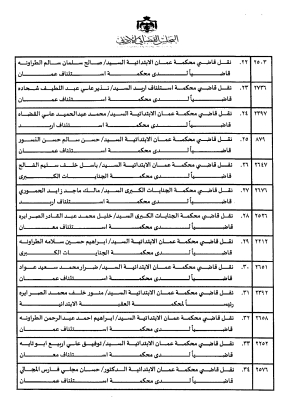 المجلس القضائي الأردني
٢٥٠٣ ٢٢. نقل قاضي محكمة عمان الابتدائية السيد/ صالح سلمان سالم الطراونه
قاضياً لدى محكمة استئناف عمان
٢٧٣٦ ٢٣. نقل قاضي محكمة استئناف اربد السيد/ نذير علي عبد اللطيف شحاده
قاضياً لدى محكمة استئناف عمان
٢٣٩٧ ٢٤. نقل قاضي محكمة عمان الابتدائية السيد/ محمد عبدالحميد علي القضاه
قاضياً لدى محكمة استئناف اربد
٨٧٩ ٢٥. نقل قاضي محكمة عمان الابتدائية السيد/ حسن سالم حسن النسور
قاضياً لدى محكمة استئناف عمان
٢٦٤٧ ٢٦. نقل قاضي محكمة عمان الابتدائية السيد/ باسل خلف سليم الفالح
قاضياً لدى محكمة الجنايات الكبرى
٢٦٧٦ ٢٧. نقل قاضي محكمة الجنايات الكبرى السيد/ مالك ماجد زايد الحموري
قاضياً لدى محكمة استئناف اربد
٢٥٢٦ ٢٨. نقل قاضي محكمة الجنايات الكبرى السيد/ خليل محمد عبد القادر الصبرايره
قاضياً لدى محكمة استئناف معان
٢٢١٢ ٢٩. نقل قاضي محكمة عمان الابتدائية السيد/ ابراهيم حسين سلامه الطراونه
قاضياً لدى محكمة الجنايات الكبرى
٢٦٥١ ٣٠. نقل قاضي محكمة عمان الابتدائية السيد/ ضرار محمد سعيد عواد
قاضياً لدى محكمة استئناف عمان
٢٣٩٢ ٣١. نقل قاضي محكمة عمان الابتدائية السيد/ منور خلف محمد الصبرايره
رئيساً لمحكمة العقبة الابتدائية
٢٦٥٨ ٣٢. نقل قاضي محكمة عمان الابتدائية السيد/ ابراهيم احمد عبدالرحمن الطراونه
قاضياً لدى محكمة استئناف عمان
٢٢٥٢ ٣٣. نقل قاضي محكمة عمان الابتدائية السيد/ توفيق علي اربيع ابو نايه
قاضياً لدى محكمة استئناف عمان
٢٥٧٦ ٣٤. نقل قاضي محكمة عمان الابتدائية الدكتور/ حسان مجلي فارس المجالي
قاضياً لدى محكمة استئناف عمان